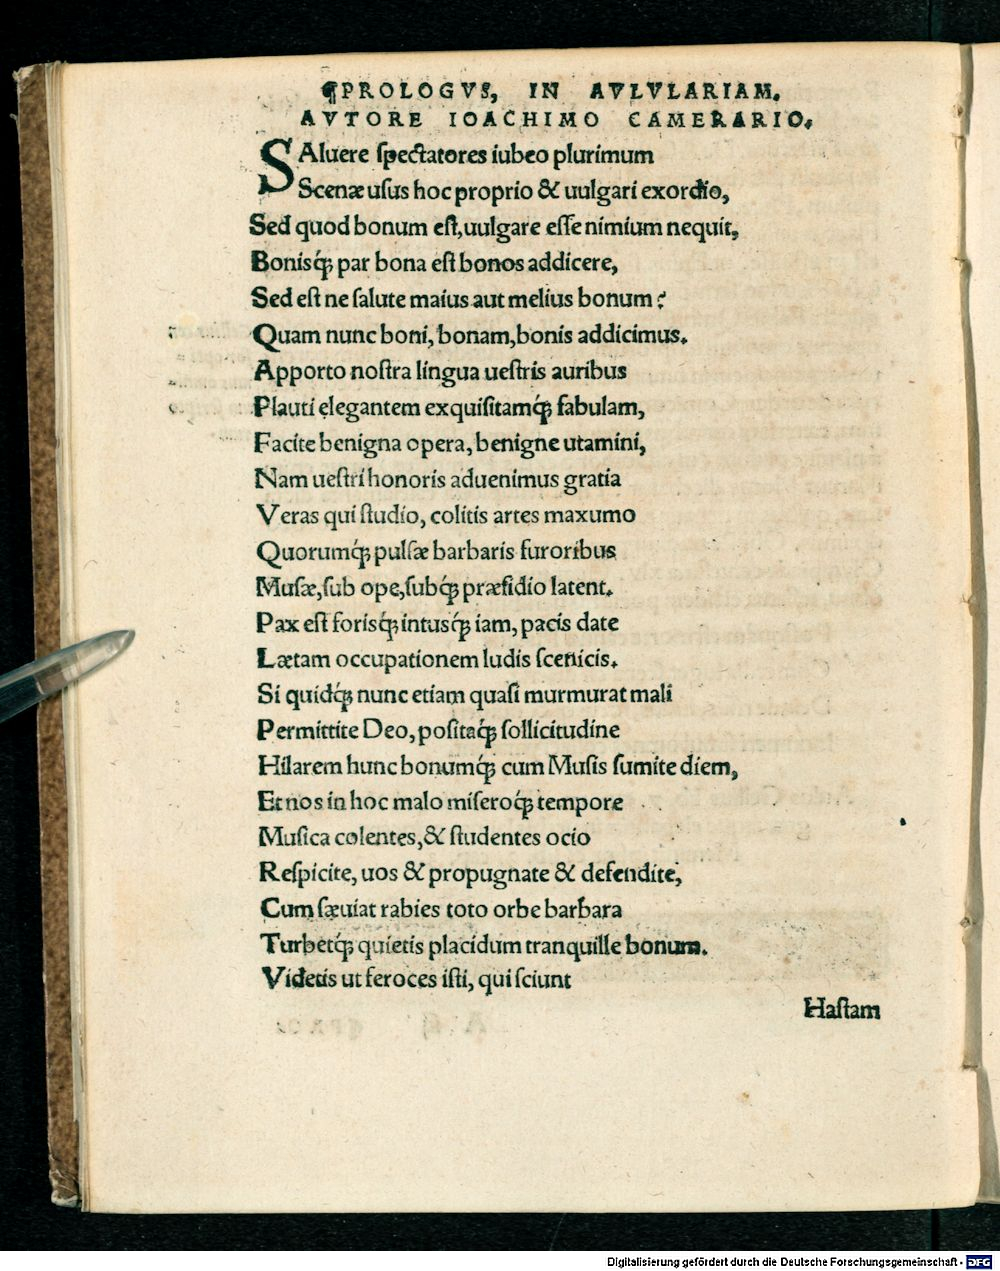 ¶PROLOGVS, IN AVLVLARIAM.
AVTORE IOACHIMO CAMERARIO.
SAluere spectatores iubeo plurimum
Scenæ usus hoc proprio & uulgari exordio,
Sed quod bonum est, uulgare esse nimium nequit,
Bonisq́; par bona est bonos addicere,
Sed est ne salute maius aut melius bonum?
Quam nunc boni, bonam, bonis addicimus.
Apporto nostra lingua uestris auribus
Plauti elegantem exquisitamq́; fabulam,
Facite benigna opera, benigne utamini,
Nam uestri honoris aduenimus gratia
Veras qui studio, colitis artes maxumo
Quorumq́; pulsæ barbaris furoribus
Musæ, sub ope, subq́; præsidio latent.
Pax est forisq́; intusq́; iam, pacis date
Lætam occupationem ludis scenicis.
Si quidq́; nunc etiam quasi murmurat mali
Permittite Deo, positaq́; sollicitudine
Hilarem hunc bonumq́; cum Musis sumite diem,
Et nos in hoc malo miseroq́; tempore
Musica colentes, & studentes ocio
Respicite, uos & propugnate & defendite,
Cum sæuiat rabies toto orbe barbara
Turbetq́; quietis placidum tranquille bonum.
Videtis ut feroces isti, qui sciunt
Hastam
Digitalisierung gefördert durch die Deutsche Forschungsgemeinschaft - DFG